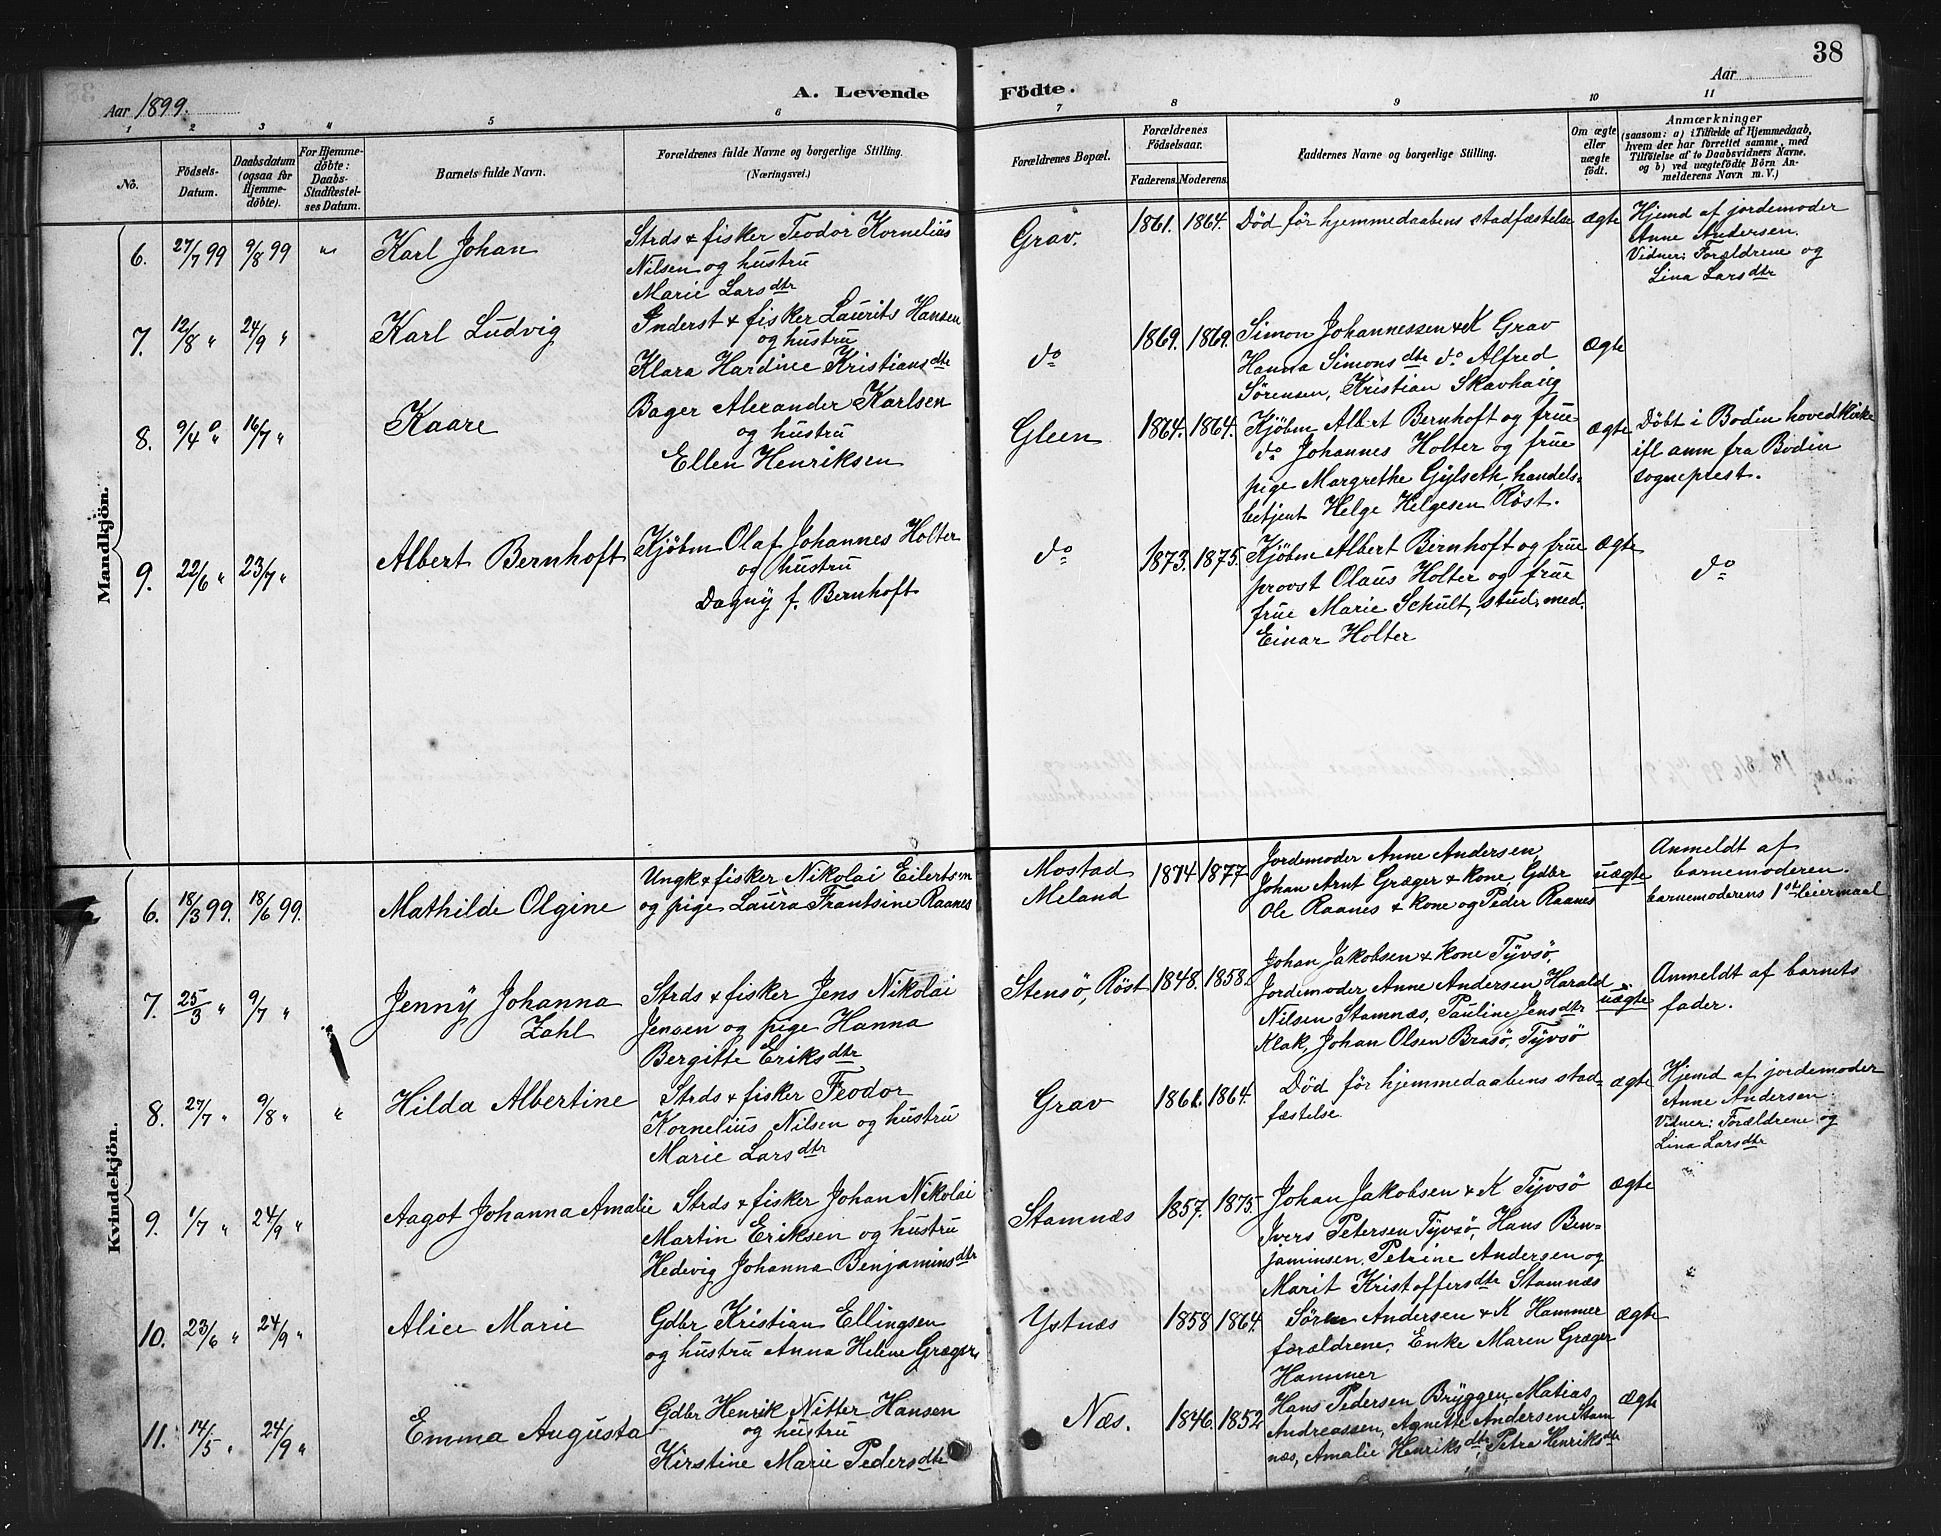 38
Aar 1899.
A. Levende Födte.
Aar
1 2 3 4 5 6 7 8 9 10 11
No.
Födsels-Datum.
Daabsdatum (ogsaa for Hjemme-döbte).
For Hjemme-döbte: Daabs-Stadfæstel-ses Datum.
Barnets fulde Navn.
Forældrenes fulde Navne og borgerlige Stilling.
(Næringsvei.)
Forældrenes Bopæl.
Forældrenes Födselsaar.
Faderens. Moderens.
Faddernes Navne og borgerlige Stilling.
Om ægte eller uægte födt.
Anmærkninger
(saasom: a) i Tilfælde af Hjemmedaab,
hvem der har forrettet samme, med
Tilföielse af to Daabsvidners Navne.
og b) ved uægtefödte Börn An-
melderens Navn m. V.)
Mandkjön.
6. 27/7 99 9/8 99 "
Karl Johan
Strds & fisker Teodor Kornelius
Nilsen og hustru
Marie Larsdtr
Grav.
1861. 1864.
Död før hjemmedaabens stadfæstelse
ægte
Hjemd af jordemoder
Anne Andersen.
Vidner: Forældrene og
Lina Larsdtr
7. 12/8 " 24/9 "
Karl Ludvig
Inderst & fisker Laurits Hansen
og hustru
Klara Hardine Kristiansdtr
do
1869. 1869.
Simon Johannessen & K Grav
Hanna Simonsdtr do Alfred
Sørensen, Kristian Skavhaug
ægte
8. 9/4 " 16/7 "
Kaare
Bager Alexander Karlsen
og hustru
Ellen Henriksen
Gleen
1864. 1864.
Kjøbm Albert Bernhoft og frue
do Johannes Holter og frue
pige Margrethe Gylseth, handels-
betjent Helge Helgesen Röst.
ægte
Döbt i Bodin hovedkirke
ifl anm fra Bodin
sogneprest.
9. 22/6 " 23/7 "
Albert Bernhoft
Kjöbm Olaf Johannes Holter
og hustru
Dagny f. Bernhoft
do
1873. 1875.
Kjøbm Albert Bernhoft og frue
provst Olaus Holter og frue
frue Marie Schult, stud. med.
Einar Holter
ægte
do
Kvindekjön.
6. 18/3 99. 18/6 99.
Mathilde Olgine
Ungk & fisker Nikolai Eilertsen
og pige Laura Frantsine Raanes
Mostad
Meland
1874 1877
Jordemoder Anne Andersen
Johan Arnt Græger & kone Gdbr
Ole Raanes & kone og Peder Raanes
uægte
Anmeldt af
barnemoderen.
barnemoderens 1ste leiermaal
7. 25/3 " 9/7 "
Jenny Johanna
Zahl
Strds & fisker Jens Nikolai
Jensen og pige Hanna
Bergitte Eriksdtr
Stensö, Röst
1848. 1858.
Johan Jakobsen & kone Tyvsö,
Jordemoder Anne Andersen, Harald
Nilsen Stamnæs, Pauline Jensdtr
Klak, Johan Olsen Brasö, Tyvsö
uægte
Anmeldt af barnets
fader.
8. 27/7 " 9/8 " "
Hilda Albertine
Strds & fisker Teodor
Kornelius Nilsen og hustru
Marie Larsdtr
Grav
1861. 1864.
Död før hjemmedaabens stad-
fæstelse
ægte
Hjemd af jordemoder
Anne Andersen
Vidner: Forældrene og
Lina Larsdtr
9. 1/7 " 24/9 "
Aagot Johanna Amalie
Strds & fisker Johan Nikolai
Martin Eriksen og hustru
Hedevig Johanna Benjaminsdtr
Stamnæs
1857. 1875.
Johan Jakobsen & K Tyvsö
Ivers Petersen Tyvsö, Hans Ben-
jaminsen, Petrine Andersen og
Marit Kristoffersdtr Stamnæs
ægte
10. 23/6 " 24/9 "
Alice Marie
Gdbr Kristian Ellingsen
og hustru Anna Helene Græger
Ystnæs
1858 1864.
Sören Andersen & K Hammer
forældrene, Enke Maren Græger
Hammer
ægte
11. 14/5 " 24/9 "
Emma Augusta
Gdbr Henrik Nitter Hansen
og hustru
Kirstine Marie Pedersdtr
Næs.
1846. 1852
Hans Pedersen Bryggen, Matias
Andreassen, Agnette Andersen Stam
næs, Amalie Henriksdtr, Petra Henriksdtr
ægte